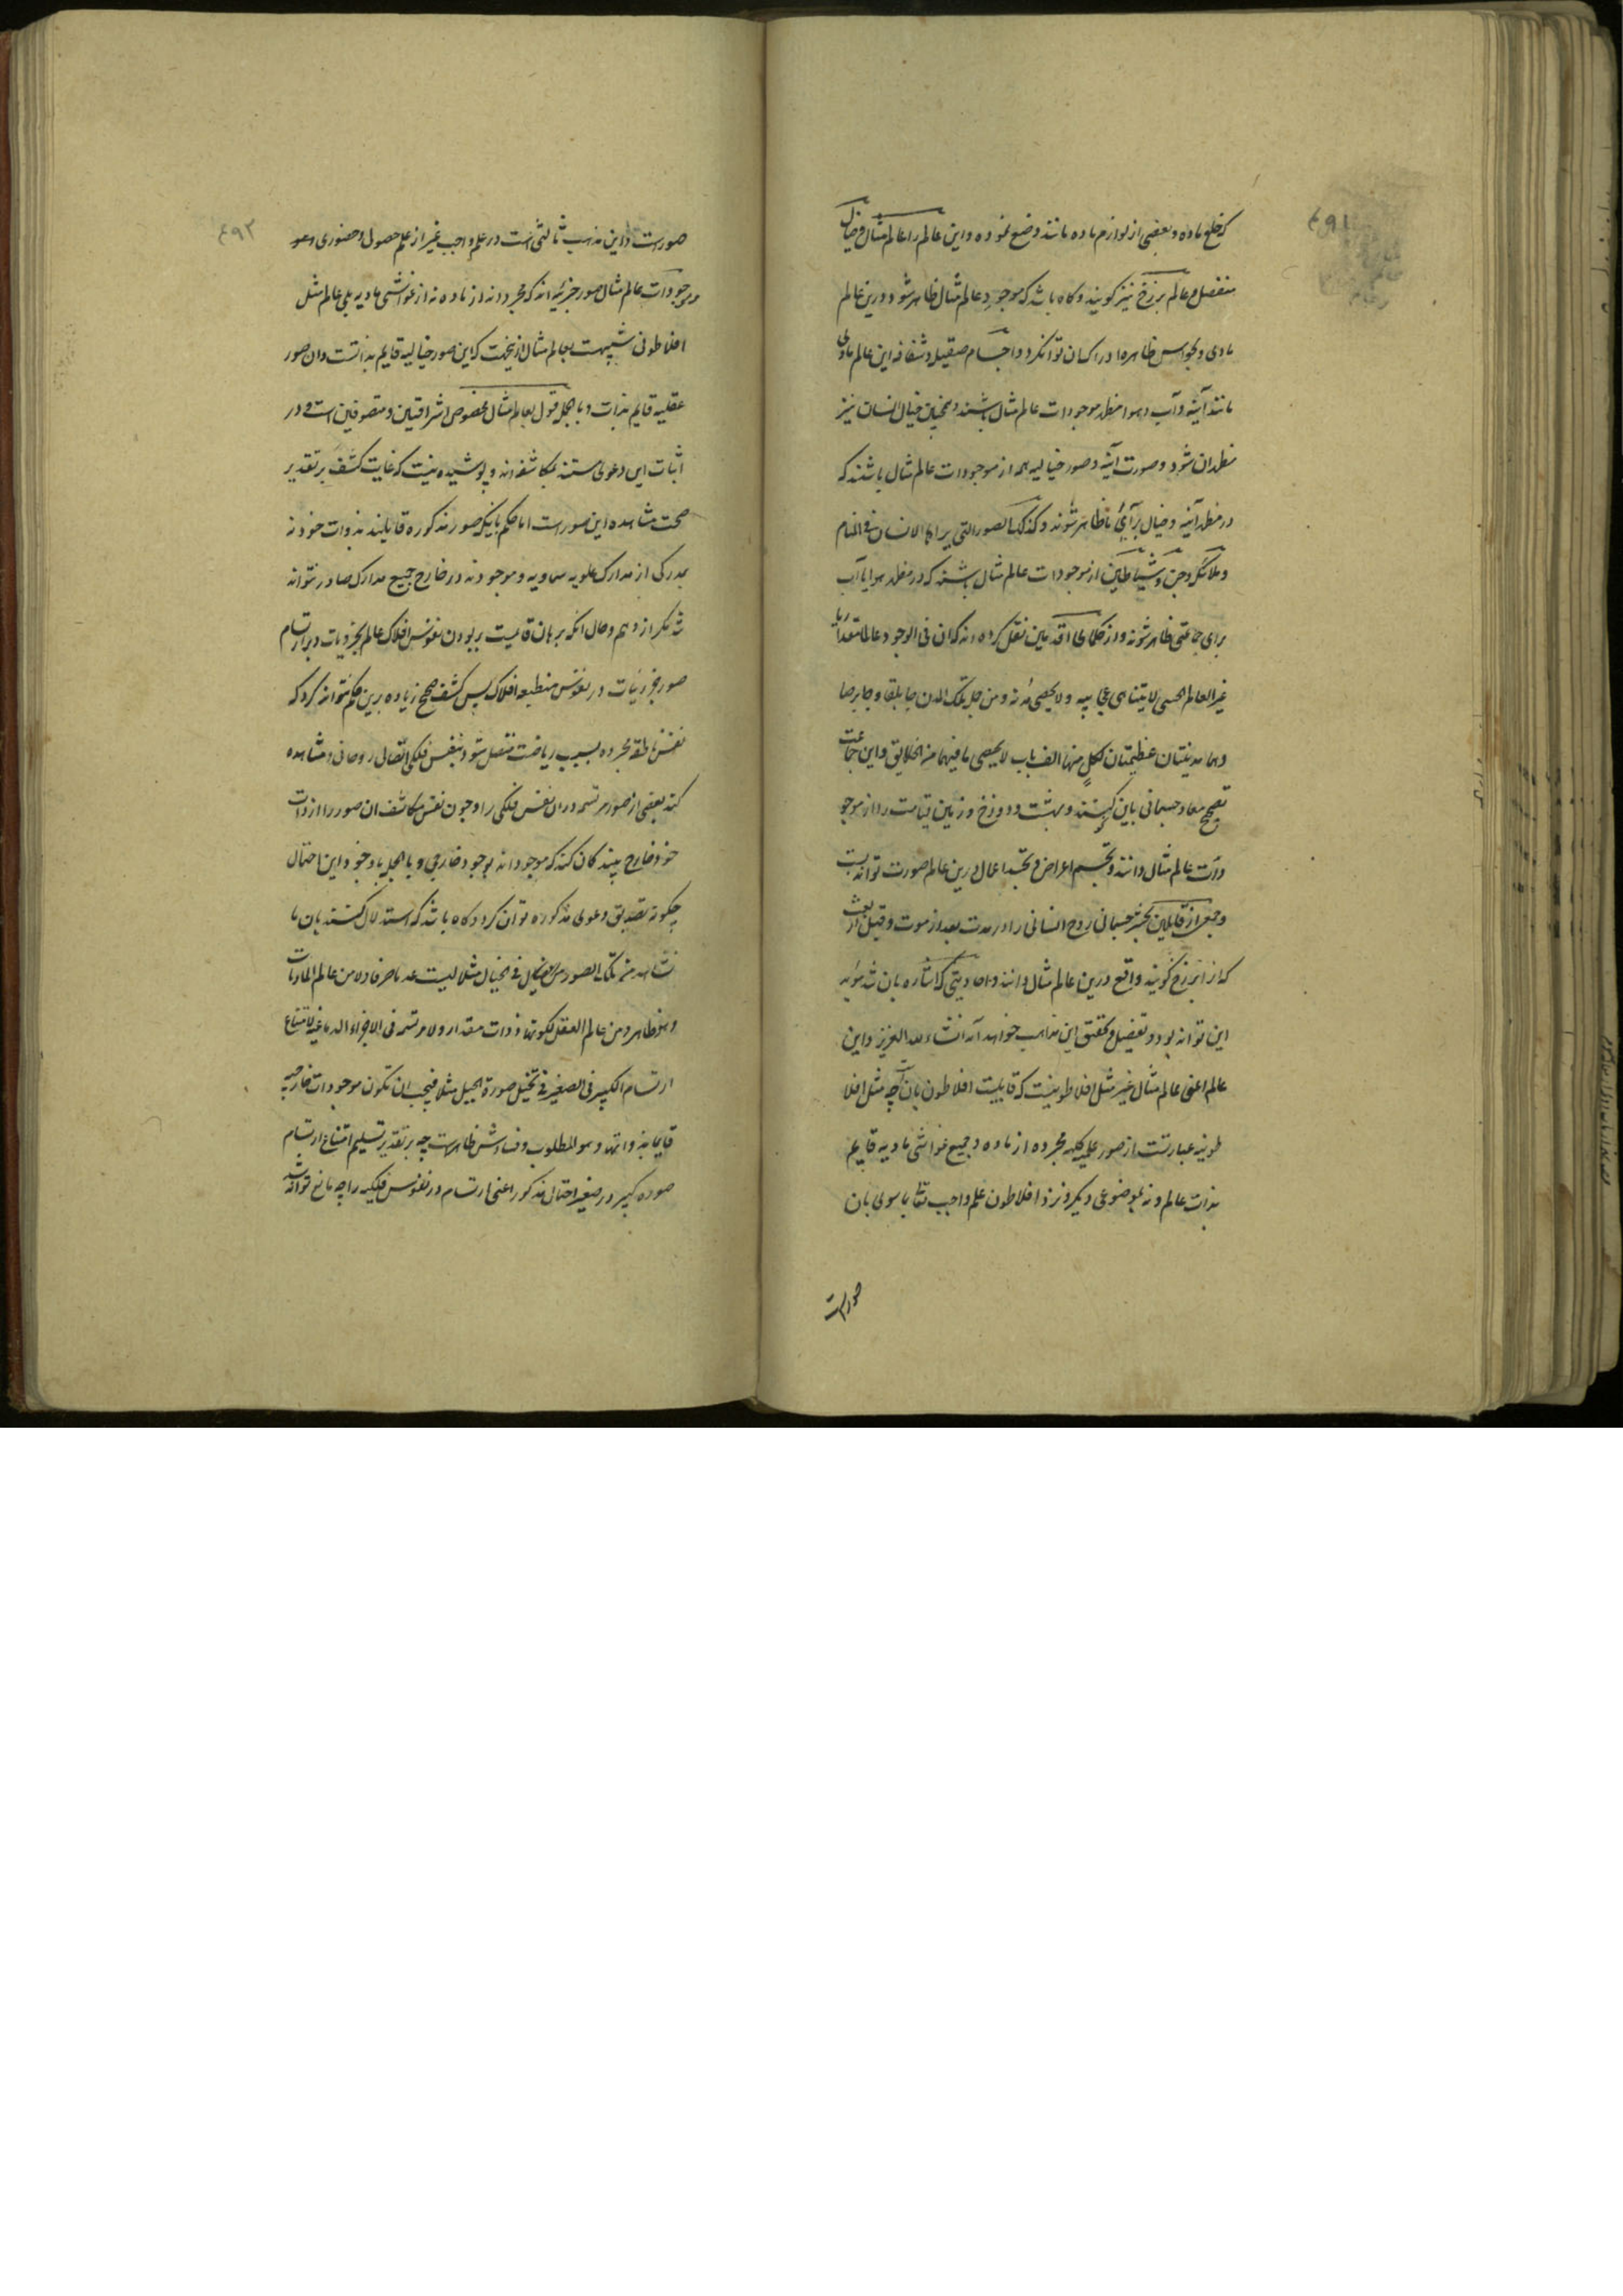 ۴۹۱
که خلع ماده و بعضی از لوازم ماده مانند وضع نموده و این عالم را عالم مثال و خیال
منفصل و عالم برزخ نیز گویند و گاه باشد که موجود عالم مثال ظاهر شود درین عالم
مادی و بحواس ظاهره ادراک ان توان کرد و اجسام صقیله و شفافه این عالم مادی
مانند آینه و آب و هوا مظهر موجودات عالم مثال باشند و همچنین خیال انسان نیز
مظهر ان شود و صورت آینه و صور خیالیه همه از موجودات عالم مثال باشند که
در مظهر آینه و خیال برای ما ظاهر شوند و کذلک الصور التی یراها الانسان فی المنام
و ملائکه و جن و شیاطین از موجودات عالم مثال باشند که در مظهر هوا یا آب
برای جماعتی ظاهر شوند و از حکمای اقدمین نقل کرده اند که ان فی الوجود عالما مقداریا
غیر العالم الحسی لا یتناهی عجایبه و لا یحصی مدنه و من جمله تلک المدن جابلقا و جابرصا
و هما مدینتان عظیمتان لکل منهما الف باب لا یحصی ما فیهما من الخلایق و این جماعت
تصحیح معاد جسمانی باین کنند و بهشت و دوزخ و زمین قیامت را از موجو
دات عالم مثال دانند و تجسم اعراض و تجسد اعمال درین عالم صورت تواند بست
و جمعی از قایلین بحشر جسمانی روح انسانی را در مدت بعد از موت و قبل از بعث
که از ابرزخ گویند واقع درین عالم مثال دانند و احادیثی که اشاره بان شد مؤید
این تواند بود و تفصیل و تحقیق این مذاهب خواهد آمد انشاء الله العزیز و این
عالم اعنی عالم مثال غیر مثل افلاطونیست که قایلیت افلاطون بان چه مثل افلا
طونیه عبارتست از صور علمیه کلیه مجرده از ماده و جمیع غواشی مادیه قایم
بذات عالم و نه بموضوعی دیگر و نزد افلاطون علم واجب تعالی باسوی بان
صورست
۴۹۲
صورست و این مذهب ثالثی است در علم واجب غیر از علم حصولی و حضوری
و موجودات عالم مثال صور جزئیه اند که مجردند از ماده نه از غواشی مادیه بلی عالم مثل
افلاطونی شبیهست بعالم مثال ازینجهت که این صور خیالیه قایم بذاتست و ان صور
عقلیه قایم بذات و بالجمله قول بعالم مثال مخصوص اشراقیین و متصوفین است و در
اثبات این دعوی مستند بمکاشفه اند و پوشیده نیست که غایت کشف بر تقدیر
صحت مشاهده این صورست اما حکم باینکه صور مذکوره قایلند بذوات خود نه
بمدرکی از مدارک علویه سماویه و موجودند در خارج جمیع مدارک صادر نتواند
شد مگر از وهم و حال انکه برهان قایمست بر بودن نفوس افلاک عالم بجزویات و بر ارتسام
صور جزئیات در نفوس منطبعه افلاک پس کشف صحیح زیاده برین حکم نتواند کرد که
نفس ناطقه مجرده بسبب ریاضت متصل شود بنفس فلکی اتصال روحانی و مشاهده
کند بعضی از صور مرتسمه در ان نفس فلکی را و چون نفس مکاشف ان صور را از ذات
خود خارج بیند گمان کند که موجودند بوجود خارجی و بالجمله با وجود این احتمال
چگونه تصدیق دعوی مذکوره توان کرد و گاه باشد که استدلال کنند بان ما
نشاهده من تلک الصور فی الخیال مثلا لیست عدما صرفا و لا من عالم المادیات
و هو ظاهر و من عالم العقل لکونها ذوات مقدار و لا مرتسمه فی الاجزاء الدماغیه لامتناع
ارتسام الکبیر فی الصغیر فی تخیل صورة الجبل مثلا فیجب ان تکون موجودات خارجیه
قایما بذواتها و هو المطلوب و فسادش ظاهرست چه بر تقدیر تسلیم امتناع ارتسام
صوره کبیر در صغیر احتمال مذکور اعنی ارتسام در نفوس فلکیه را چه مانع تواند شد